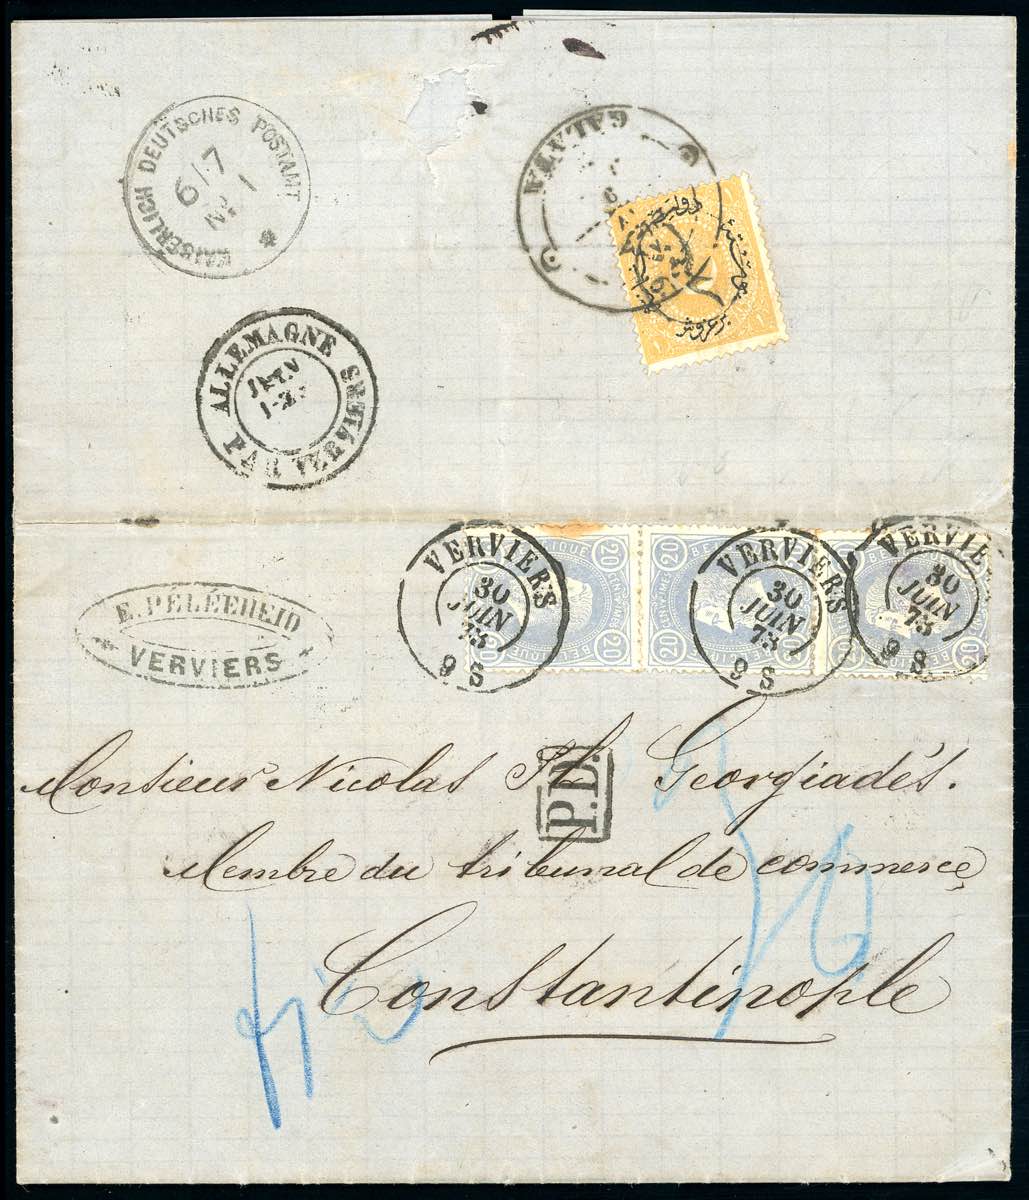 KAISERLICH DEUTSCHES POSTAMT
6/7
No 1
GALATA
بر غروش
ALLEMAGNE
JUIN
PAR VERVIERS
BELGIQUE
20
20
20
20
20
VERVIERS
30
JUIN
73
9 S
VERVIERS
30
JUIN
73
9 S
VERVIE
30
JUIN
73
9 S
VERVIERS
Monsieur Nicolas Georgiadés.
P.D.
Membre du tribunal de commerce
Constantinople